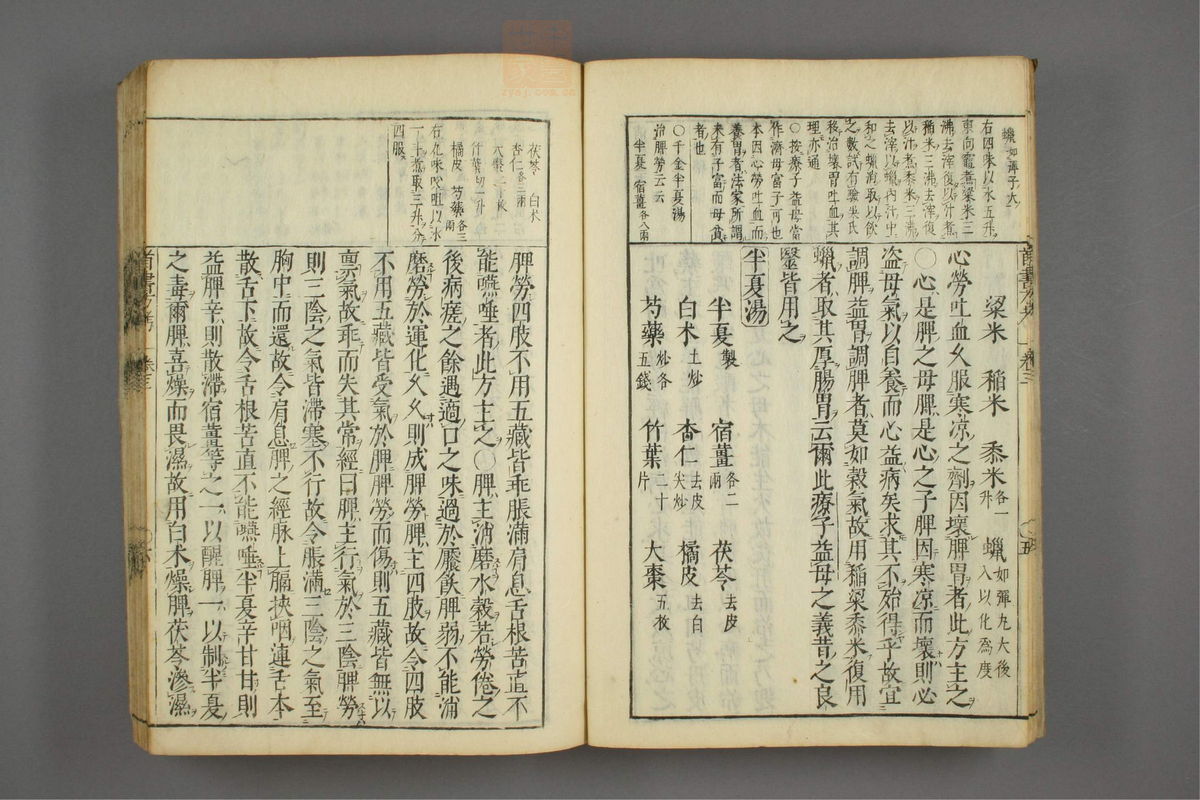 蠟如彈子大
右四味以水五升
東向竈煮粱米三
沸去滓復以汁煮
稻米三沸去滓復
以汁煮黍米三沸
去滓以蠟內汁中
和之蠟消取以飲
之數試有驗吳氏
移治壞胃吐血其
理亦通
○按療子益母當
作濟母富子可也
本因心勞吐血而
養胃者法家所謂
未有子富而母貧
者也
○千金半夏湯
治脾勞云云
半夏 宿薑各八兩
粱米 稻米 黍米各一升 蠟如彈丸大後入以化為度
心勞吐血久服寒涼之劑因壞脾胃者此方主之
○心是脾之母脾是心之子脾因寒涼而壞則必
盜母氣以自養而心益病矣求其不殆得乎故宜
調脾益胃調脾者莫如穀氣故用稻粱黍米復用
蠟者取其厚腸胃云爾此療子益母之義昔之良
醫皆用之
半夏湯
半夏製 宿薑各二兩 茯苓去皮
白朮土炒 杏仁去皮尖炒 橘皮去白
芍藥炒各五錢 竹葉二十片 大棗五枚
茯苓 白朮
杏仁各三兩
大棗二十枚
竹葉切一升
橘皮 芍藥各三兩
右九味㕮咀以水
一斗煮取三升分
四服
脾勞四肢不用五藏皆乖脹滿肩息舌根苦直不
能嚥唾者此方主之○脾主消磨水穀若勞倦之
後病瘥之餘遇適口之味過於饜飫脾弱不能消
磨勞於運化久久則成脾勞脾主四肢故令四肢
不用五藏皆受氣於脾脾勞而傷則五藏皆無以
禀氣故乖而失其常經曰脾主行氣於三陰脾勞
則三陰之氣皆滯塞不行故令脹滿三陰之氣至
胸中而還故令肩息脾之經脉上膈挾咽連舌本
散舌下故令舌根苦直不能嚥唾半夏辛甘甘則
益脾辛則散滯宿薑等之一以醒脾一以制半夏
之毒爾脾喜燥而畏濕故用白朮燥脾茯苓滲濕